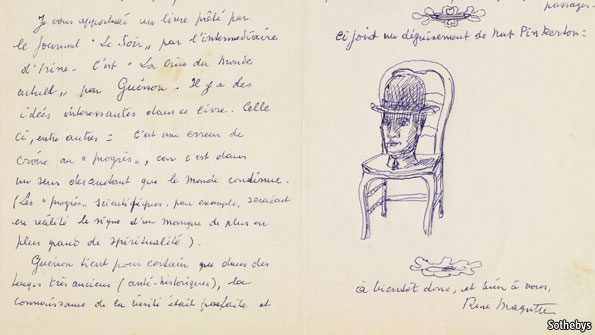 Je vous apporterai un livre prêté par
le Journal "Le Soir", par l'intermédiaire
d'Irène. C'est "La Crise du Monde
actuel", par Guénon. Il y a des
idées intéressantes dans ce livre. Celle
ci, entre autres = C'est une erreur de
croire au "progrès", car c'est dans
un sens descendant que le monde continue.
(Les "progrès" scientifiques, par exemple, seraient
en réalité le signe d'un manque de plus en
plus grand de spiritualité).
Guénon tient pour certain que dans des
temps très anciens (anté-historiques), la
connaissance de la vérité était parfaite et
passages-
Ci joint un déguisement de Nat Pinkerton =
à bientôt donc, et bien à vous,
René Magritte
Sothebys